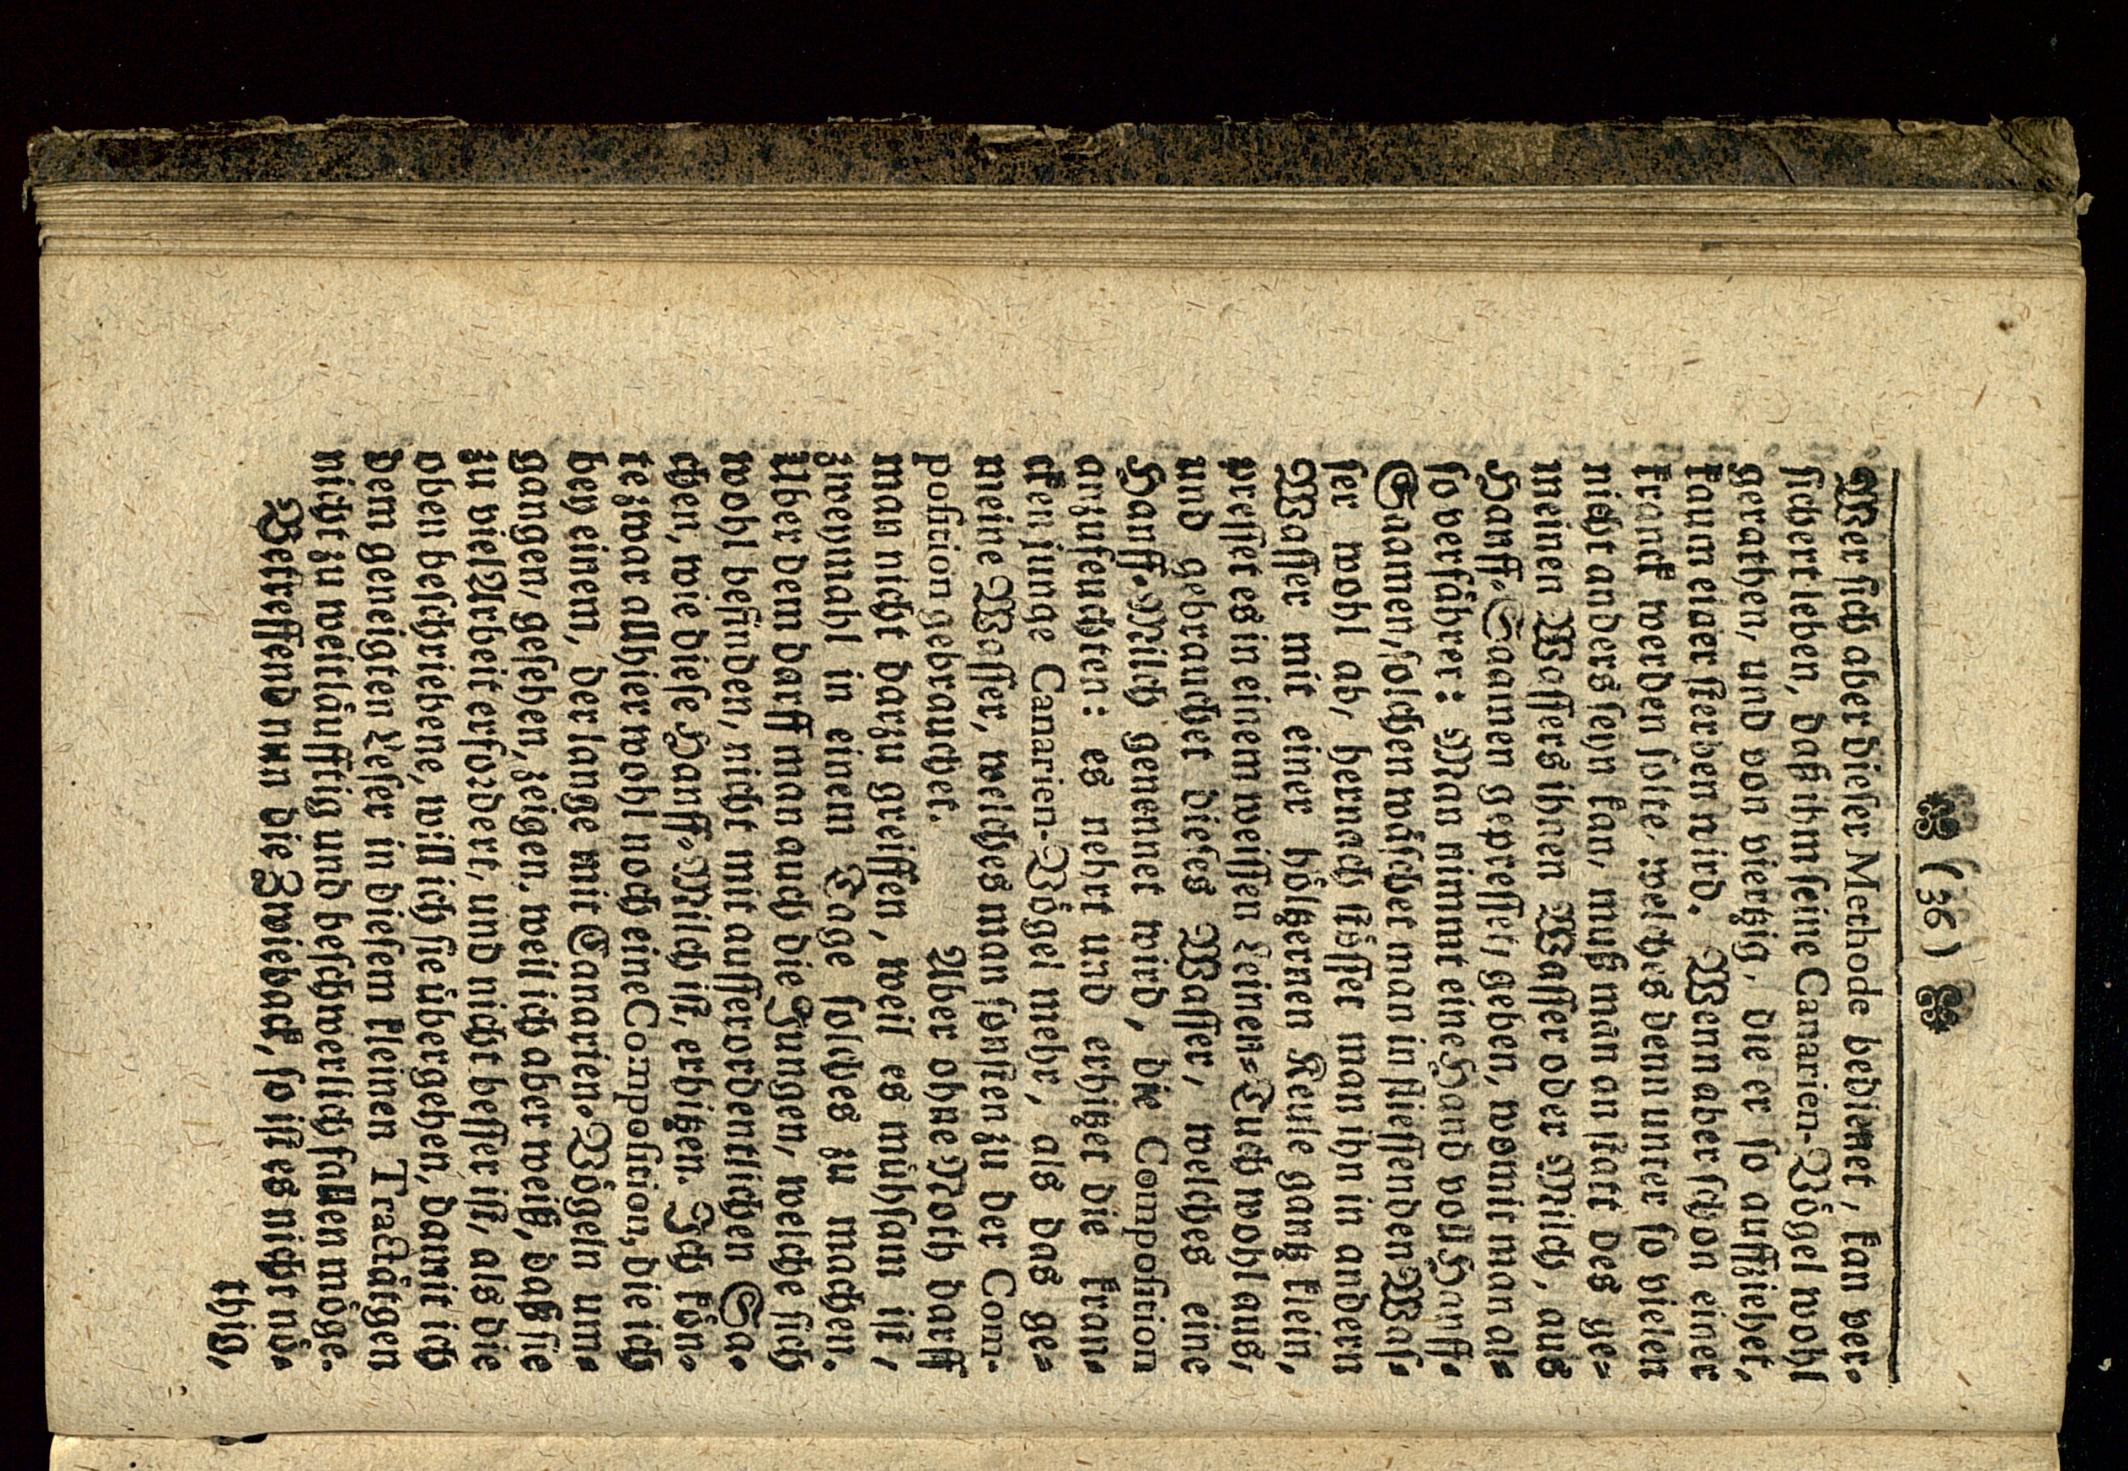 ❧ (36) ❧
Wer sich aber dieser Methode bedienet, kan ver-
sichert leben, daß ihm seine Canarien-Vögel wohl
gerathen, und von viertzig, die er so auffziehet,
kaum einer sterben wird. Wenn aber schon einer
kranck werden solte, welches denn unter so vielen
nicht anders seyn kan, muß man an statt des ge-
meinen Wassers ihnen Wasser oder Milch, aus
Hanff-Saamen gepresset, geben, womit man al-
so verfähret: Man nimmt eine Hand voll Hanff-
Saamen, solchen wäschet man in fliessenden Was-
ser wohl ab, hernach stösset man ihn in andern
Wasser mit einer höltzernen Keule gantz klein,
presset es in einem weissen Leinen-Tuch wohl aus,
und gebrauchet dieses Wasser, welches eine
Hanff-Milch genennet wird, die Composition
anzufeuchten: es nehrt und erhitzet die kran-
cken junge Canarien-Vögel mehr, als das ge-
meine Wasser, welches man sonsten zu der Com-
position gebrauchet. Aber ohne Noth darff
man nicht darzu greiffen, weil es mühsam ist,
zweymahl in einem Tage solches zu machen.
Uber dem darff man auch die Jungen, welche sich
wohl befinden, nicht mit ausserordentlichen Sa-
chen, wie diese Hanff-Milch ist, erhitzen. Ich kön-
te zwar allhier wohl noch eine Composition, die ich
bey einem, der lange mit Canarien-Vögeln um-
gangen, gesehen, zeigen, weil ich aber weiß, daß sie
zu viel Arbeit erfodert, und nicht besser ist, als die
oben beschriebene, will ich sie übergehen, damit ich
dem geneigten Leser in diesem kleinen Tractätgen
nicht zu weitläufftig und beschwerlich fallen möge.
Betreffend nun die Zwieback, so ist es nicht nö-
thig,